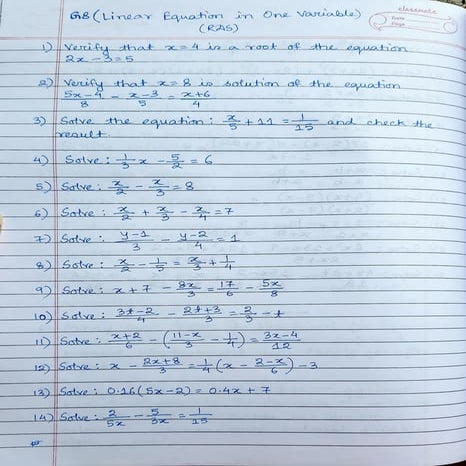 G8 (Linear Equation in One Variable)
(RDS)
classmate
Date
Page
1) Verify that x = 4 is a root of the equation
2x - 3 = 5
2) Verify that x = 8 is solution of the equation
(5x-4)/8 - (x-3)/5 = (x+6)/4
3) Solve the equation: x/5 + 11 = 1/15 and check the
result.
4) Solve: 1/3 x - 5/2 = 6
5) Solve: x/2 - x/3 = 8
6) Solve: x/2 + x/3 - x/4 = 7
7) Solve: (y-1)/3 - (y-2)/4 = 1
8) Solve: x/2 - 1/5 = x/3 + 1/4
9) Solve: x + 7 - 8x/3 = 17/6 - 5x/8
10) Solve: (3t-2)/4 - (2t+3)/3 = 2/3 - t
11) Solve: (x+2)/6 - ((11-x)/3 - 1/4) = (3x-4)/12
12) Solve: x - (2x+8)/3 = 1/4 (x - (2-x)/6) - 3
13) Solve: 0.16(5x-2) = 0.4x + 7
14) Solve: 2/5x - 5/3x = 1/15